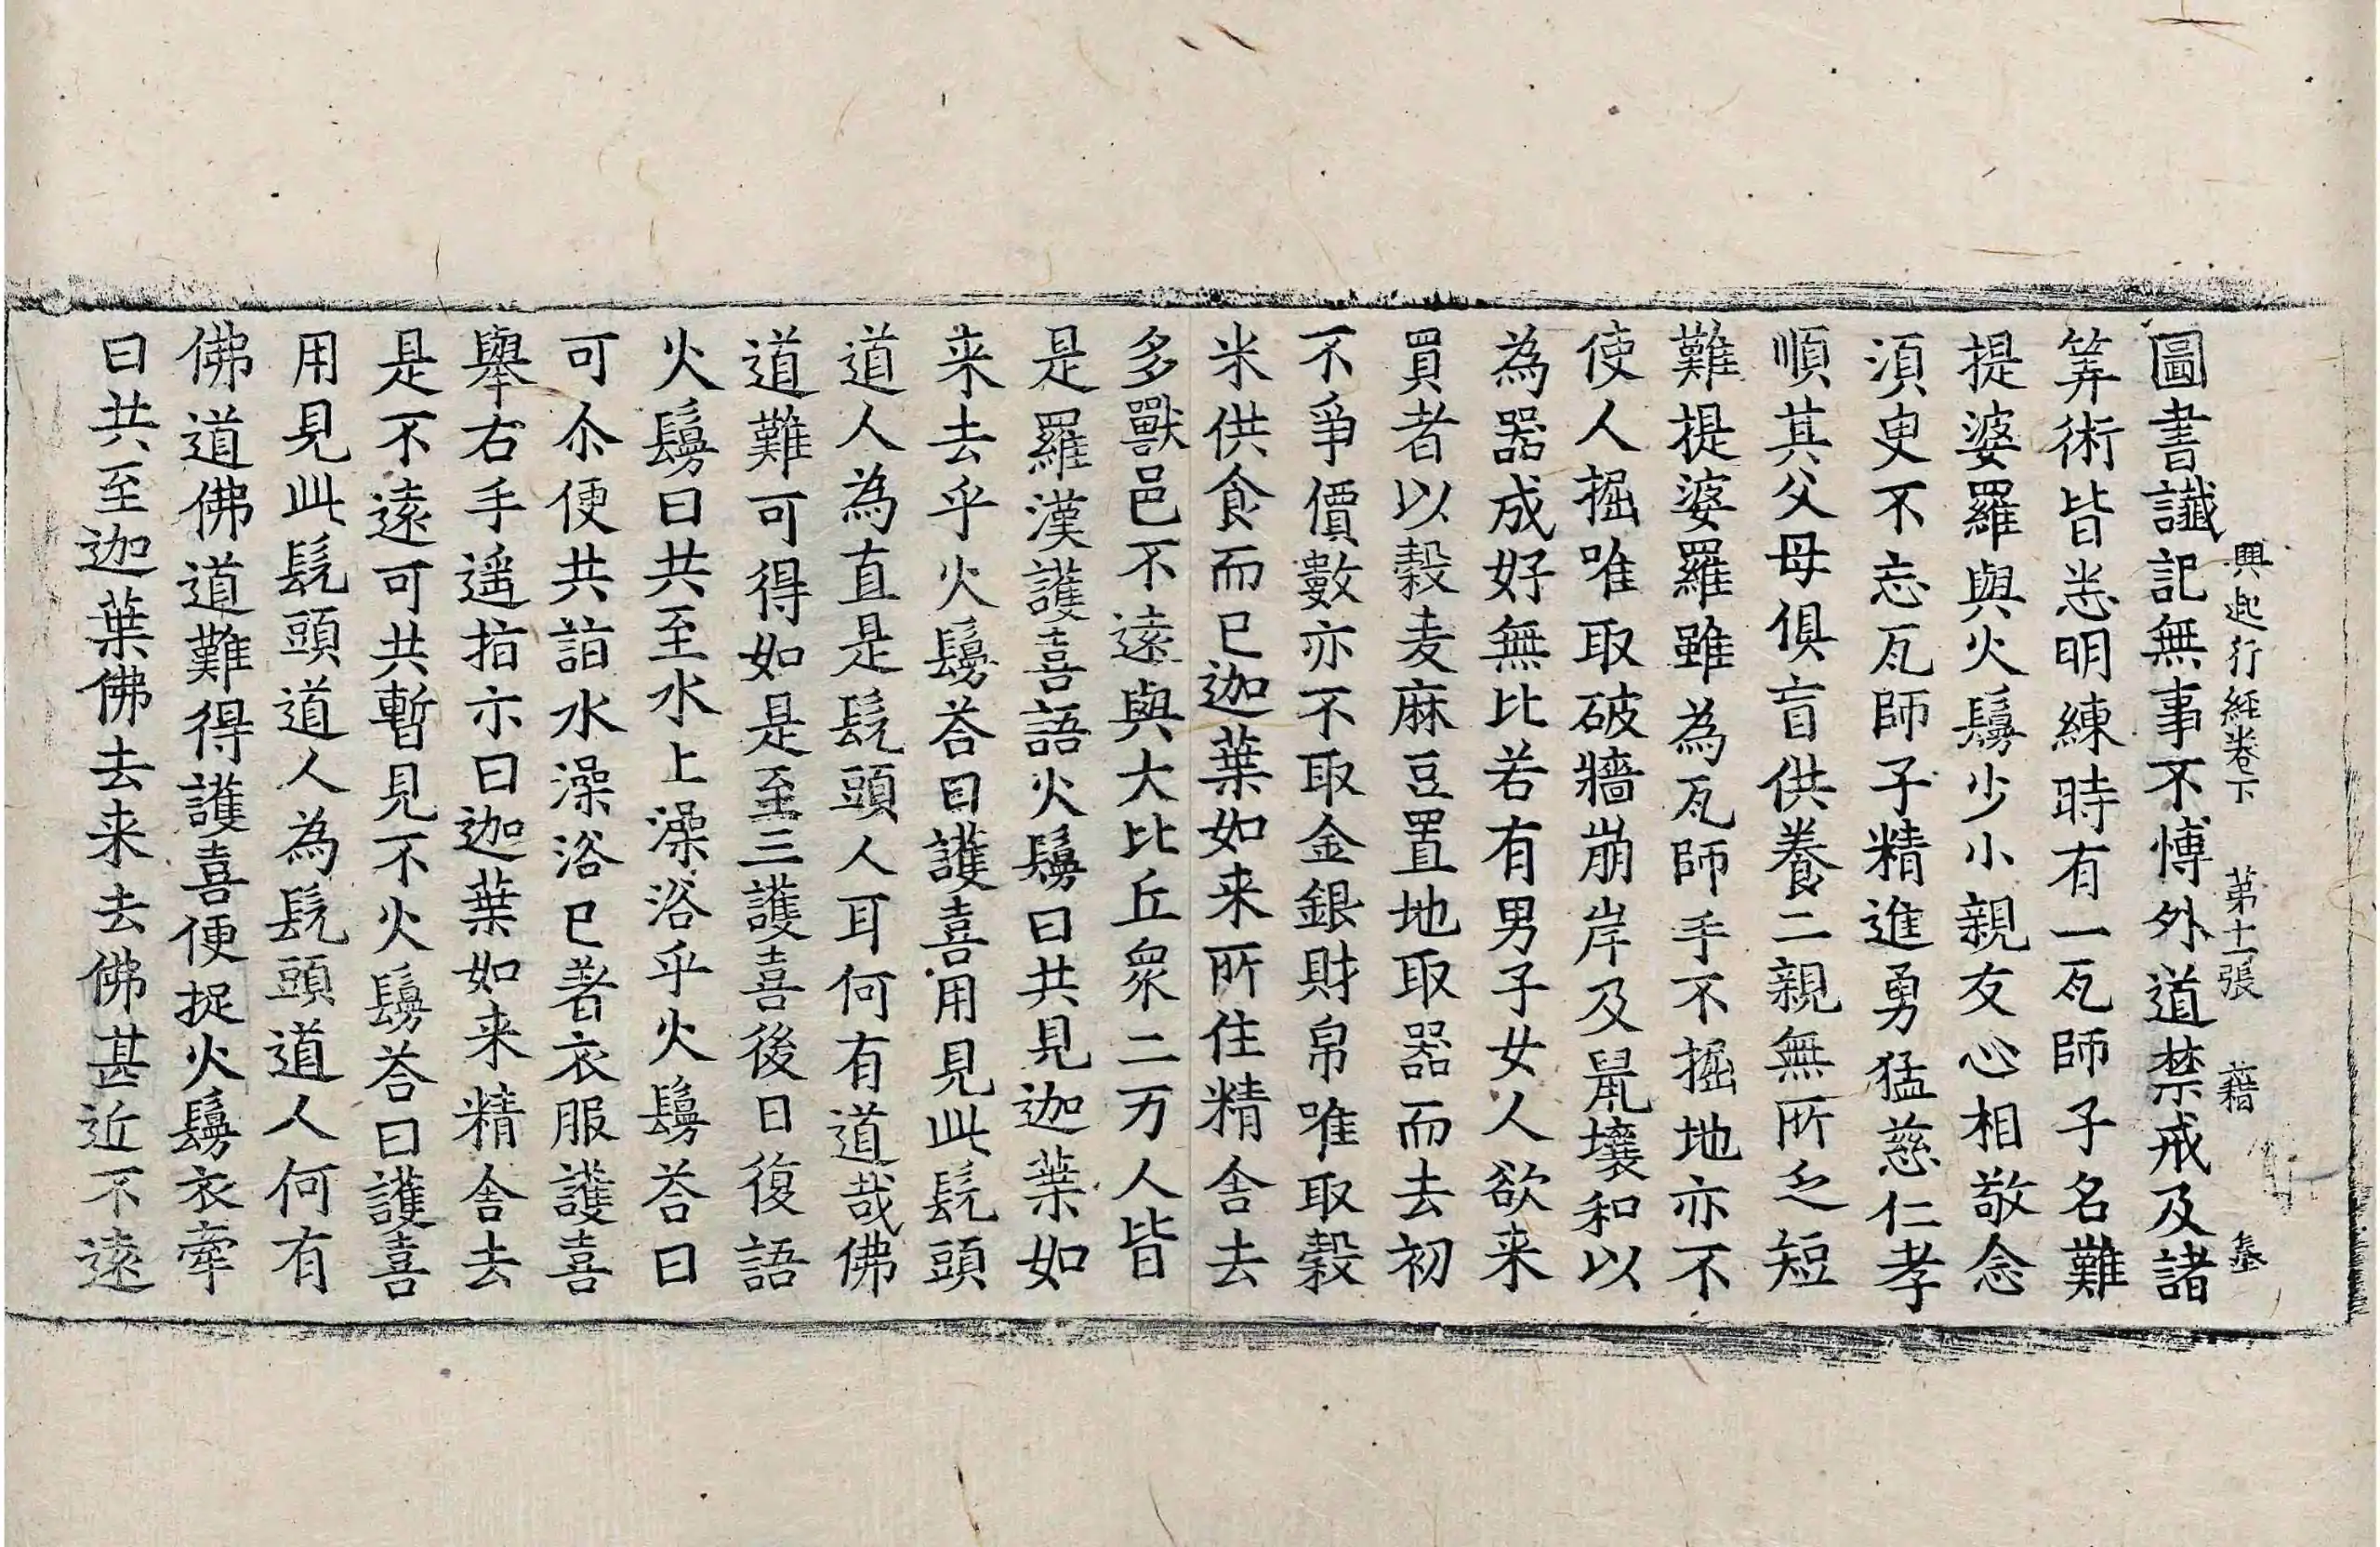 圖書讖記無事不愽外道禁戒及諸
筭術皆悉明練時有一瓦師子名難
提婆羅與火鬘少小親友心相敬念
湏臾不忘瓦師子精進勇猛慈仁孝
順其父母俱盲供養二親無所乏短
難提婆羅雖為瓦師手不掘地亦不
使人掘唯取破牆崩岸及鼠壤和以
為器成好無比若有男子女人欲来
買者以穀麦麻豆置地取器而去初
不爭價數亦不取金銀財帛唯取穀
米供食而已迦葉如来所住精舍去
多獸邑不遠與大比丘眾二万人皆
是羅漢護喜語火鬘曰共見迦葉如
来去乎火鬘荅曰護喜用見此髡頭
道人為直是髡頭人耳何有道哉佛
道難可得如是至三護喜後日復語
火鬘曰共至水上澡浴乎火鬘荅曰
可尒便共詣水澡浴已著衣服護喜
舉右手遥指示曰迦葉如来精舍去
是不遠可共暫見不火鬘荅曰護喜
用見此髡頭道人為髡頭道人何有
佛道佛道難得護喜便捉火鬘衣牽
曰共至迦葉佛去来去佛甚近不遠
興起行経卷下 第十一張 藉